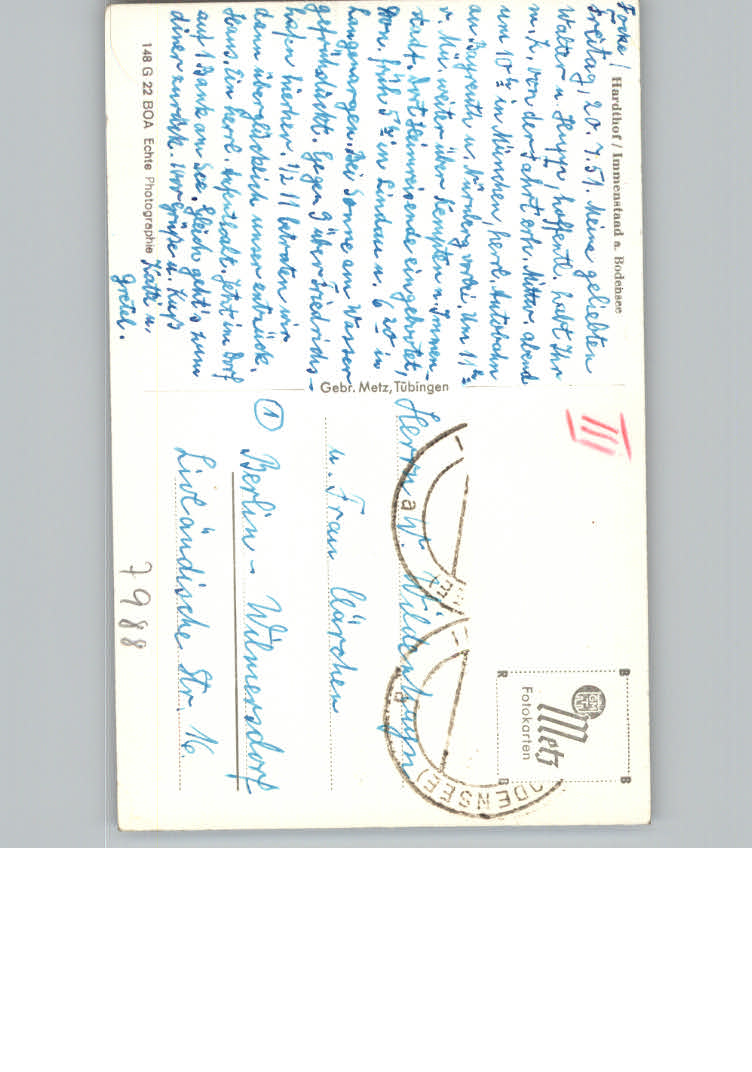 Hardthof / Immenstaad a. Bodensee
Freitag, 20. 7. 51. Meine geliebten
Walter u. hoffentl. habt Ihr
m. K. von der Fahrt erh. Mittw. abend
um 10 in München, herrl. Autobahn
an Bayreuth u. Nürnberg vorbei. Um 11
v. Mü. weiter über Kempten u. Immen-
stadt, dort eingebootet,
Don. früh 5 in Lindau u. 6 20 in
Langenargen. Bei Sonne am Wasser
gefrühstückt. Gegen 9 über Friedrichs-
hafen hierher. 1/2 11 betraten wir
dann überglücklich unser entzück.
Haus. Ein herrl. Aufenthalt. Jetzt im Dorf
auf 1 Bank am See. Gleich geht's zum
diner zurück. u. Kuß
Käthe u.
Gretel.
148 G 22 BOA Echte Photographie
Gebr. Metz, Tübingen
III
Metz
Fotokarten
B
B
R
B
ODENSEE)
a
Herrn W.
u. Frau Clärchen
① Berlin - Wilmersdorf
Livländische Str. 16
7988